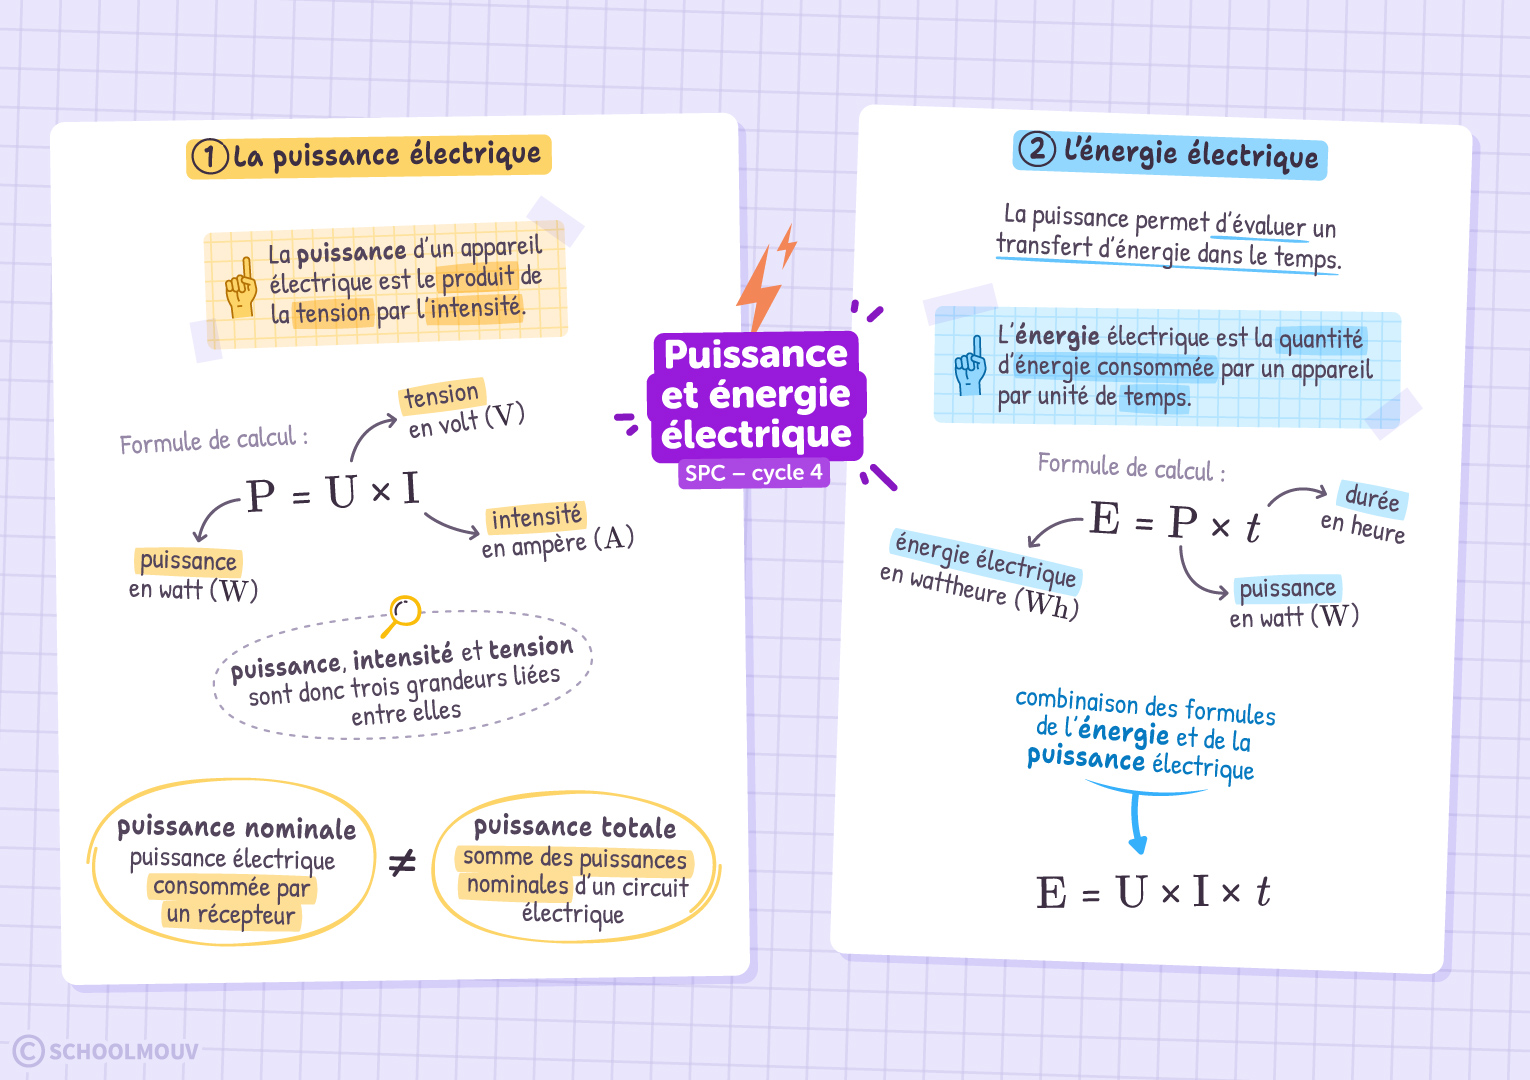 1 La puissance électrique
La puissance d'un appareil
électrique est le produit de
la tension par l'intensité.
Formule de calcul :
tension
en volt (V)
P = U × I
puissance
en watt (W)
intensité
en ampère (A)
puissance, intensité et tension
sont donc trois grandeurs liées
entre elles
puissance nominale
puissance électrique
consommée par
un récepteur
≠
puissance totale
somme des puissances
nominales d'un circuit
électrique
Puissance
et énergie
électrique
SPC – cycle 4
2 L'énergie électrique
La puissance permet d'évaluer un
transfert d'énergie dans le temps.
L'énergie électrique est la quantité
d'énergie consommée par un appareil
par unité de temps.
Formule de calcul :
durée
en heure
E = P × t
énergie électrique
en wattheure (Wh)
puissance
en watt (W)
combinaison des formules
de l'énergie et de la
puissance électrique
E = U × I × t
© SCHOOLMOUV